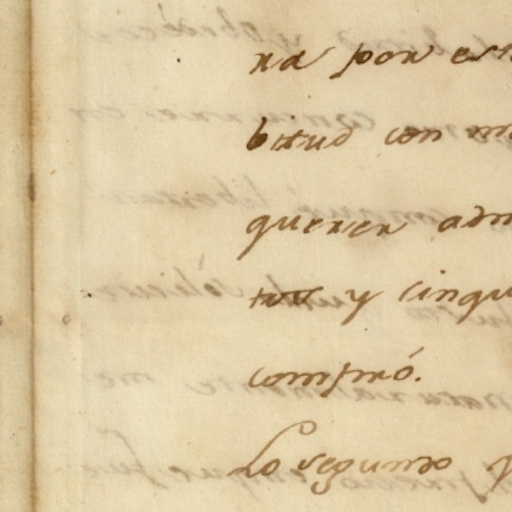 ra por est
bitud con m
querer adm
tos y cinqu
compró.
Lo segundo